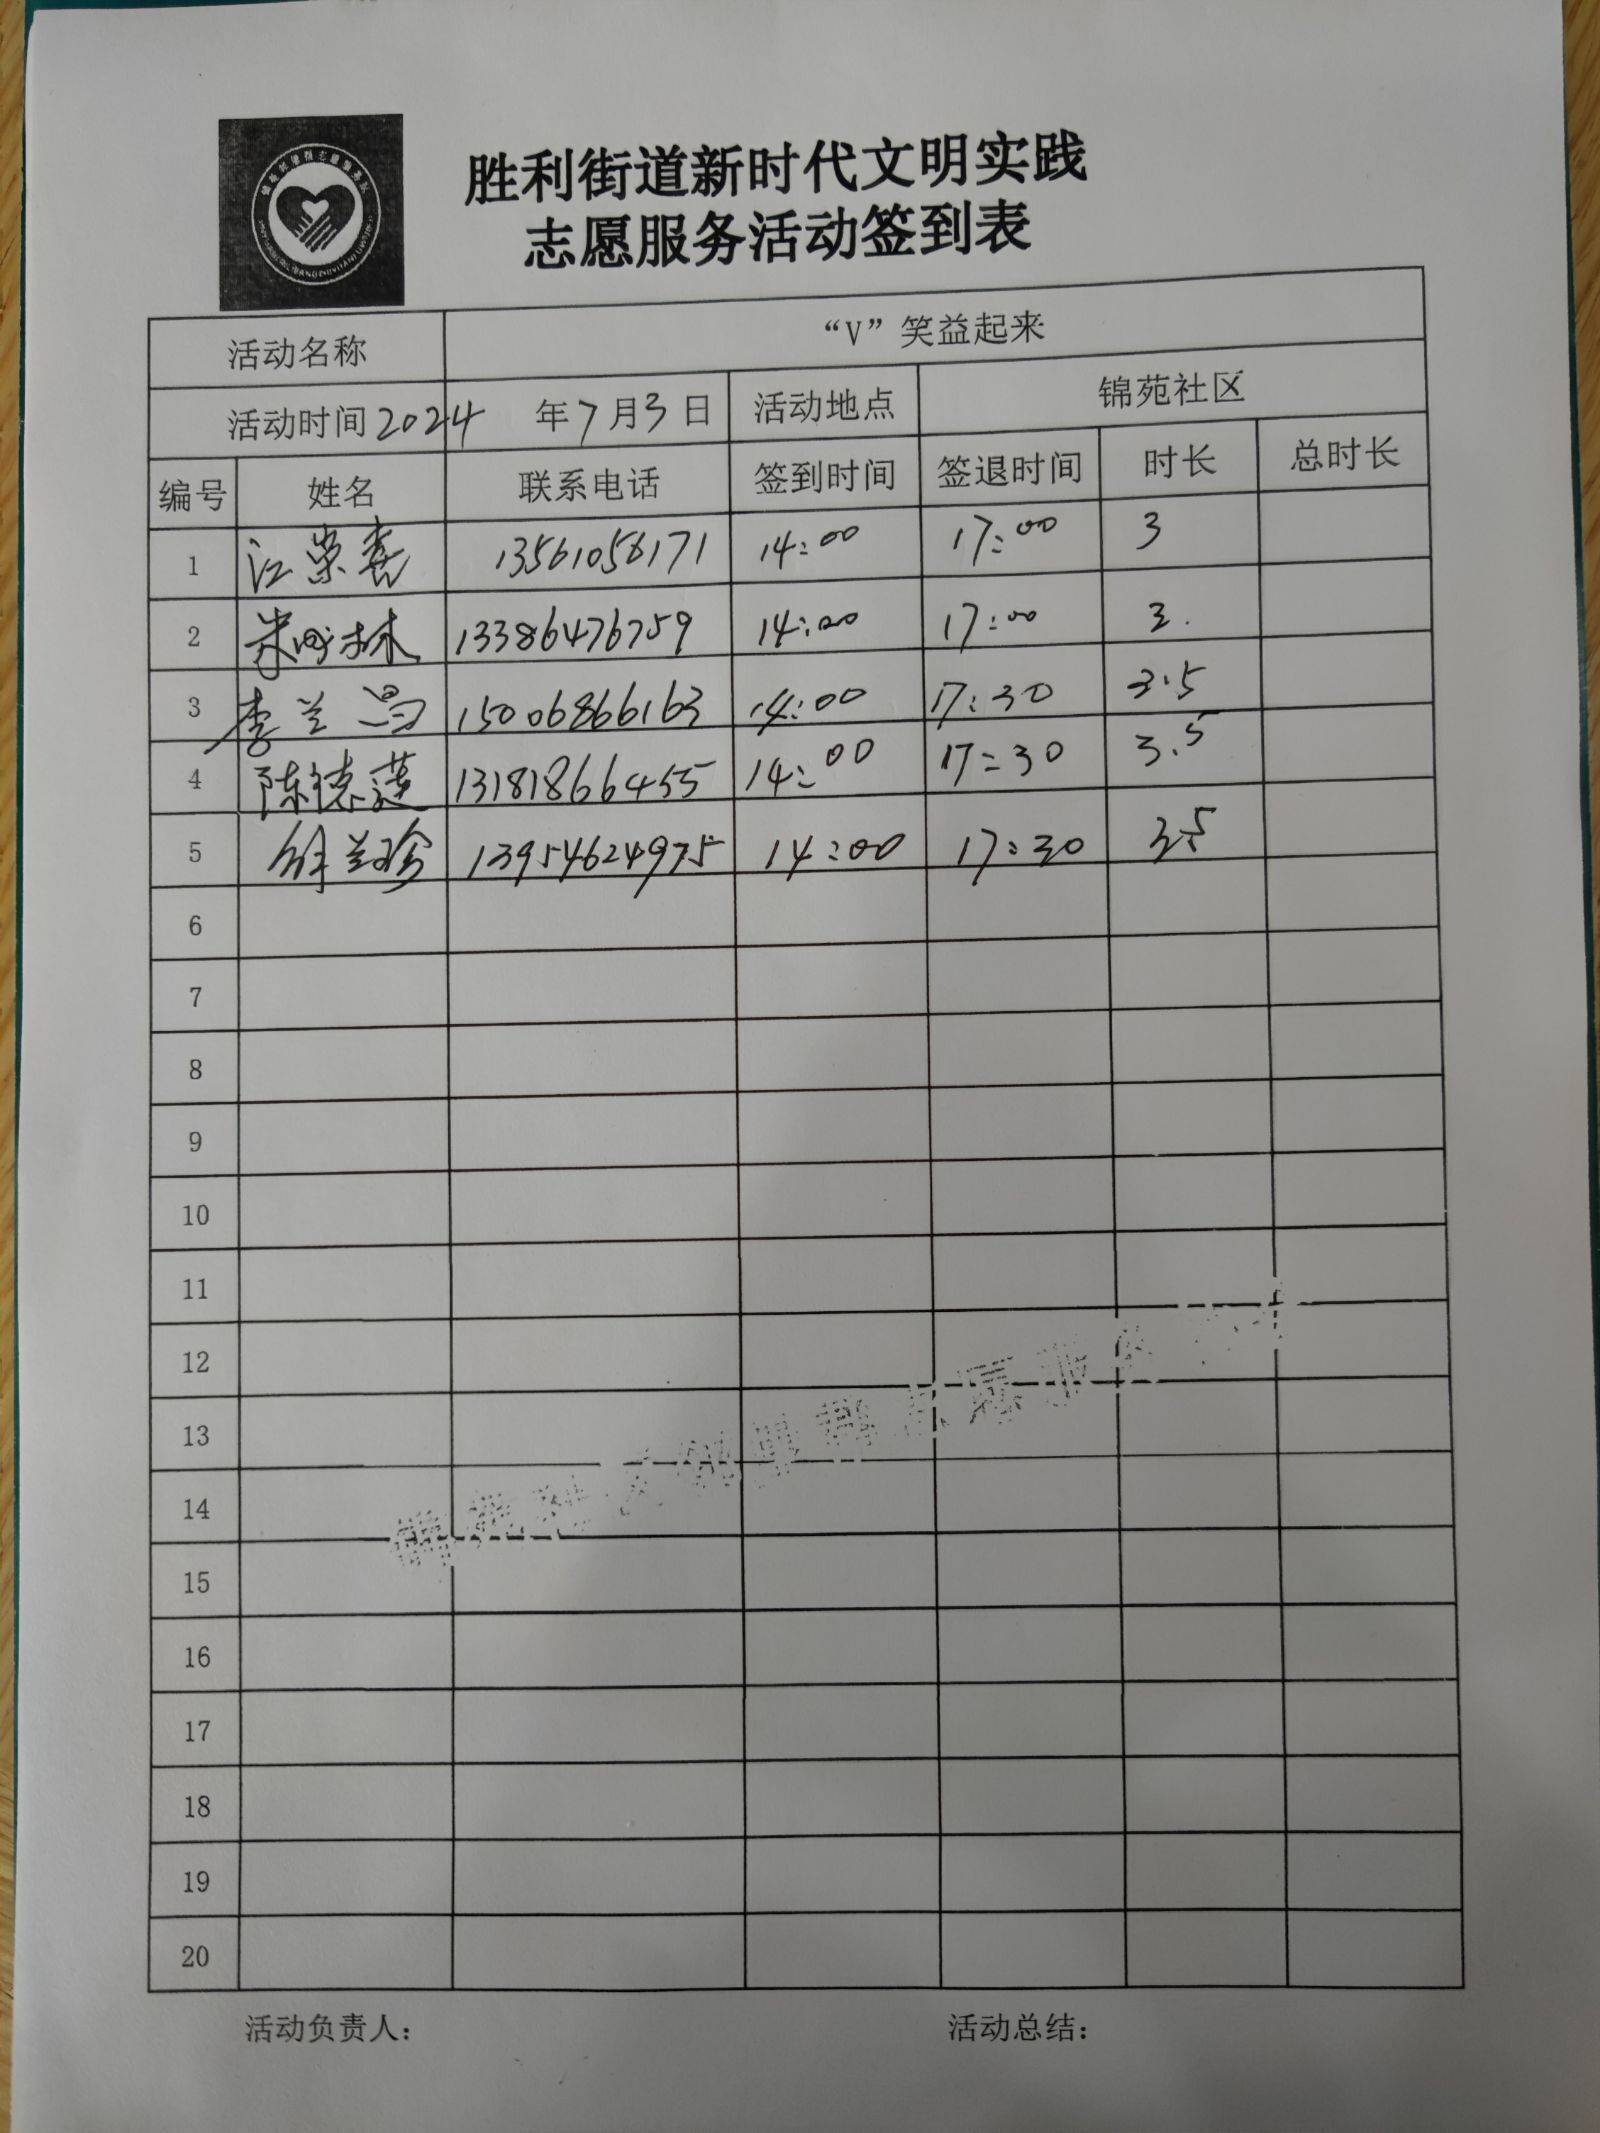 胜利街道新时代文明实践
志愿服务活动签到表
活动名称 “V”笑益起来
活动时间 2024 年 7 月 3 日 活动地点 锦苑社区
编号 姓名 联系电话 签到时间 签退时间 时长 总时长
1 江荣喜 13561058171 14:00 17:00 3
2 13386476759 14:00 17:00 3.
3 李兰昌 15006866163 14:00 17:30 3.5
4 陈德莲 13181866455 14:00 17:30 3.5
5 徐兰珍 13954624975 14:00 17:30 3.5
6
7
8
9
10
11
12
13
14
15
16
17
18
19
20
活动负责人： 活动总结：